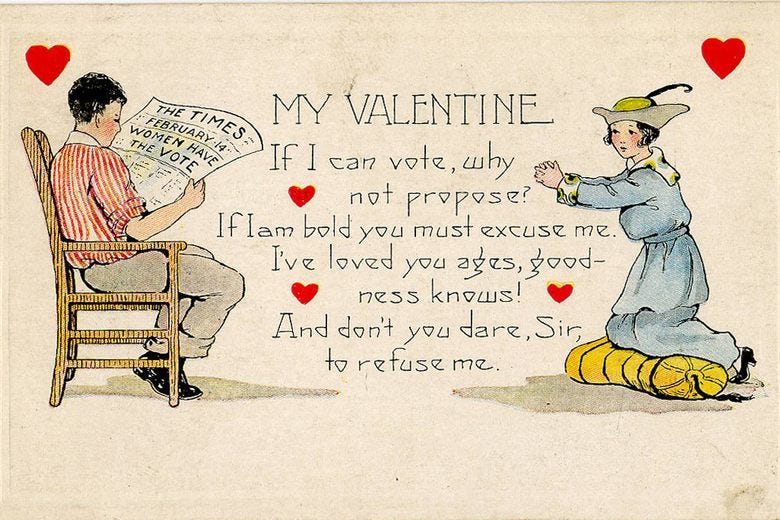 THE TIMES
FEBRUARY 14
WOMEN HAVE
THE VOTE
MY VALENTINE
If I can vote, why
not propose?
If I am bold you must excuse me.
I've loved you ages, good-
ness knows!
And don't you dare, Sir,
to refuse me.